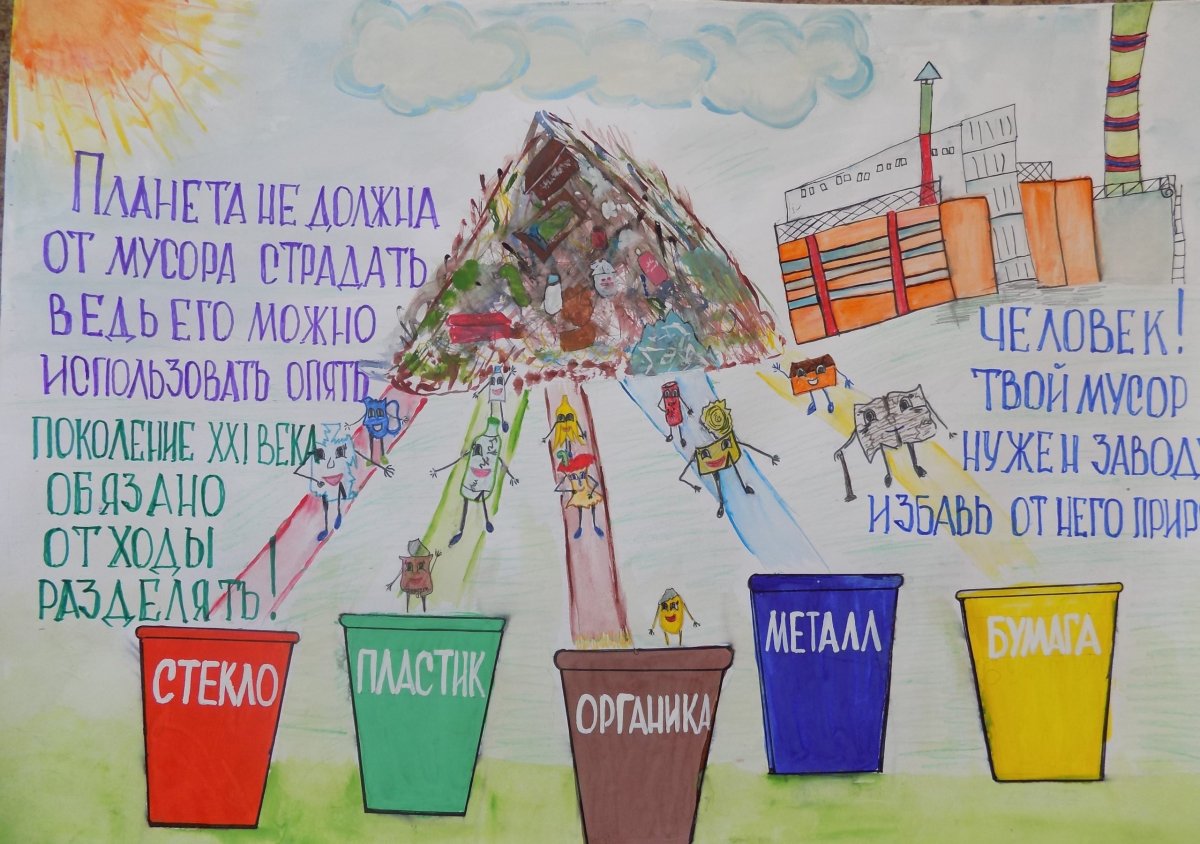 ПЛАНЕТА НЕ ДОЛЖНА
ОТ МУСОРА СТРАДАТЬ
ВЕДЬ ЕГО МОЖНО
ИСПОЛЬЗОВАТЬ ОПЯТЬ
ПОКОЛЕНИЕ XXI ВЕКА
ОБЯЗАНО
ОТХОДЫ
РАЗДЕЛЯТЬ!
ЧЕЛОВЕК!
ТВОЙ МУСОР
НУЖЕН ЗАВОД
ИЗБАВЬ ОТ НЕГО ПРИР
СТЕКЛО
ПЛАСТИК
ОРГАНИКА
МЕТАЛЛ
БУМАГА